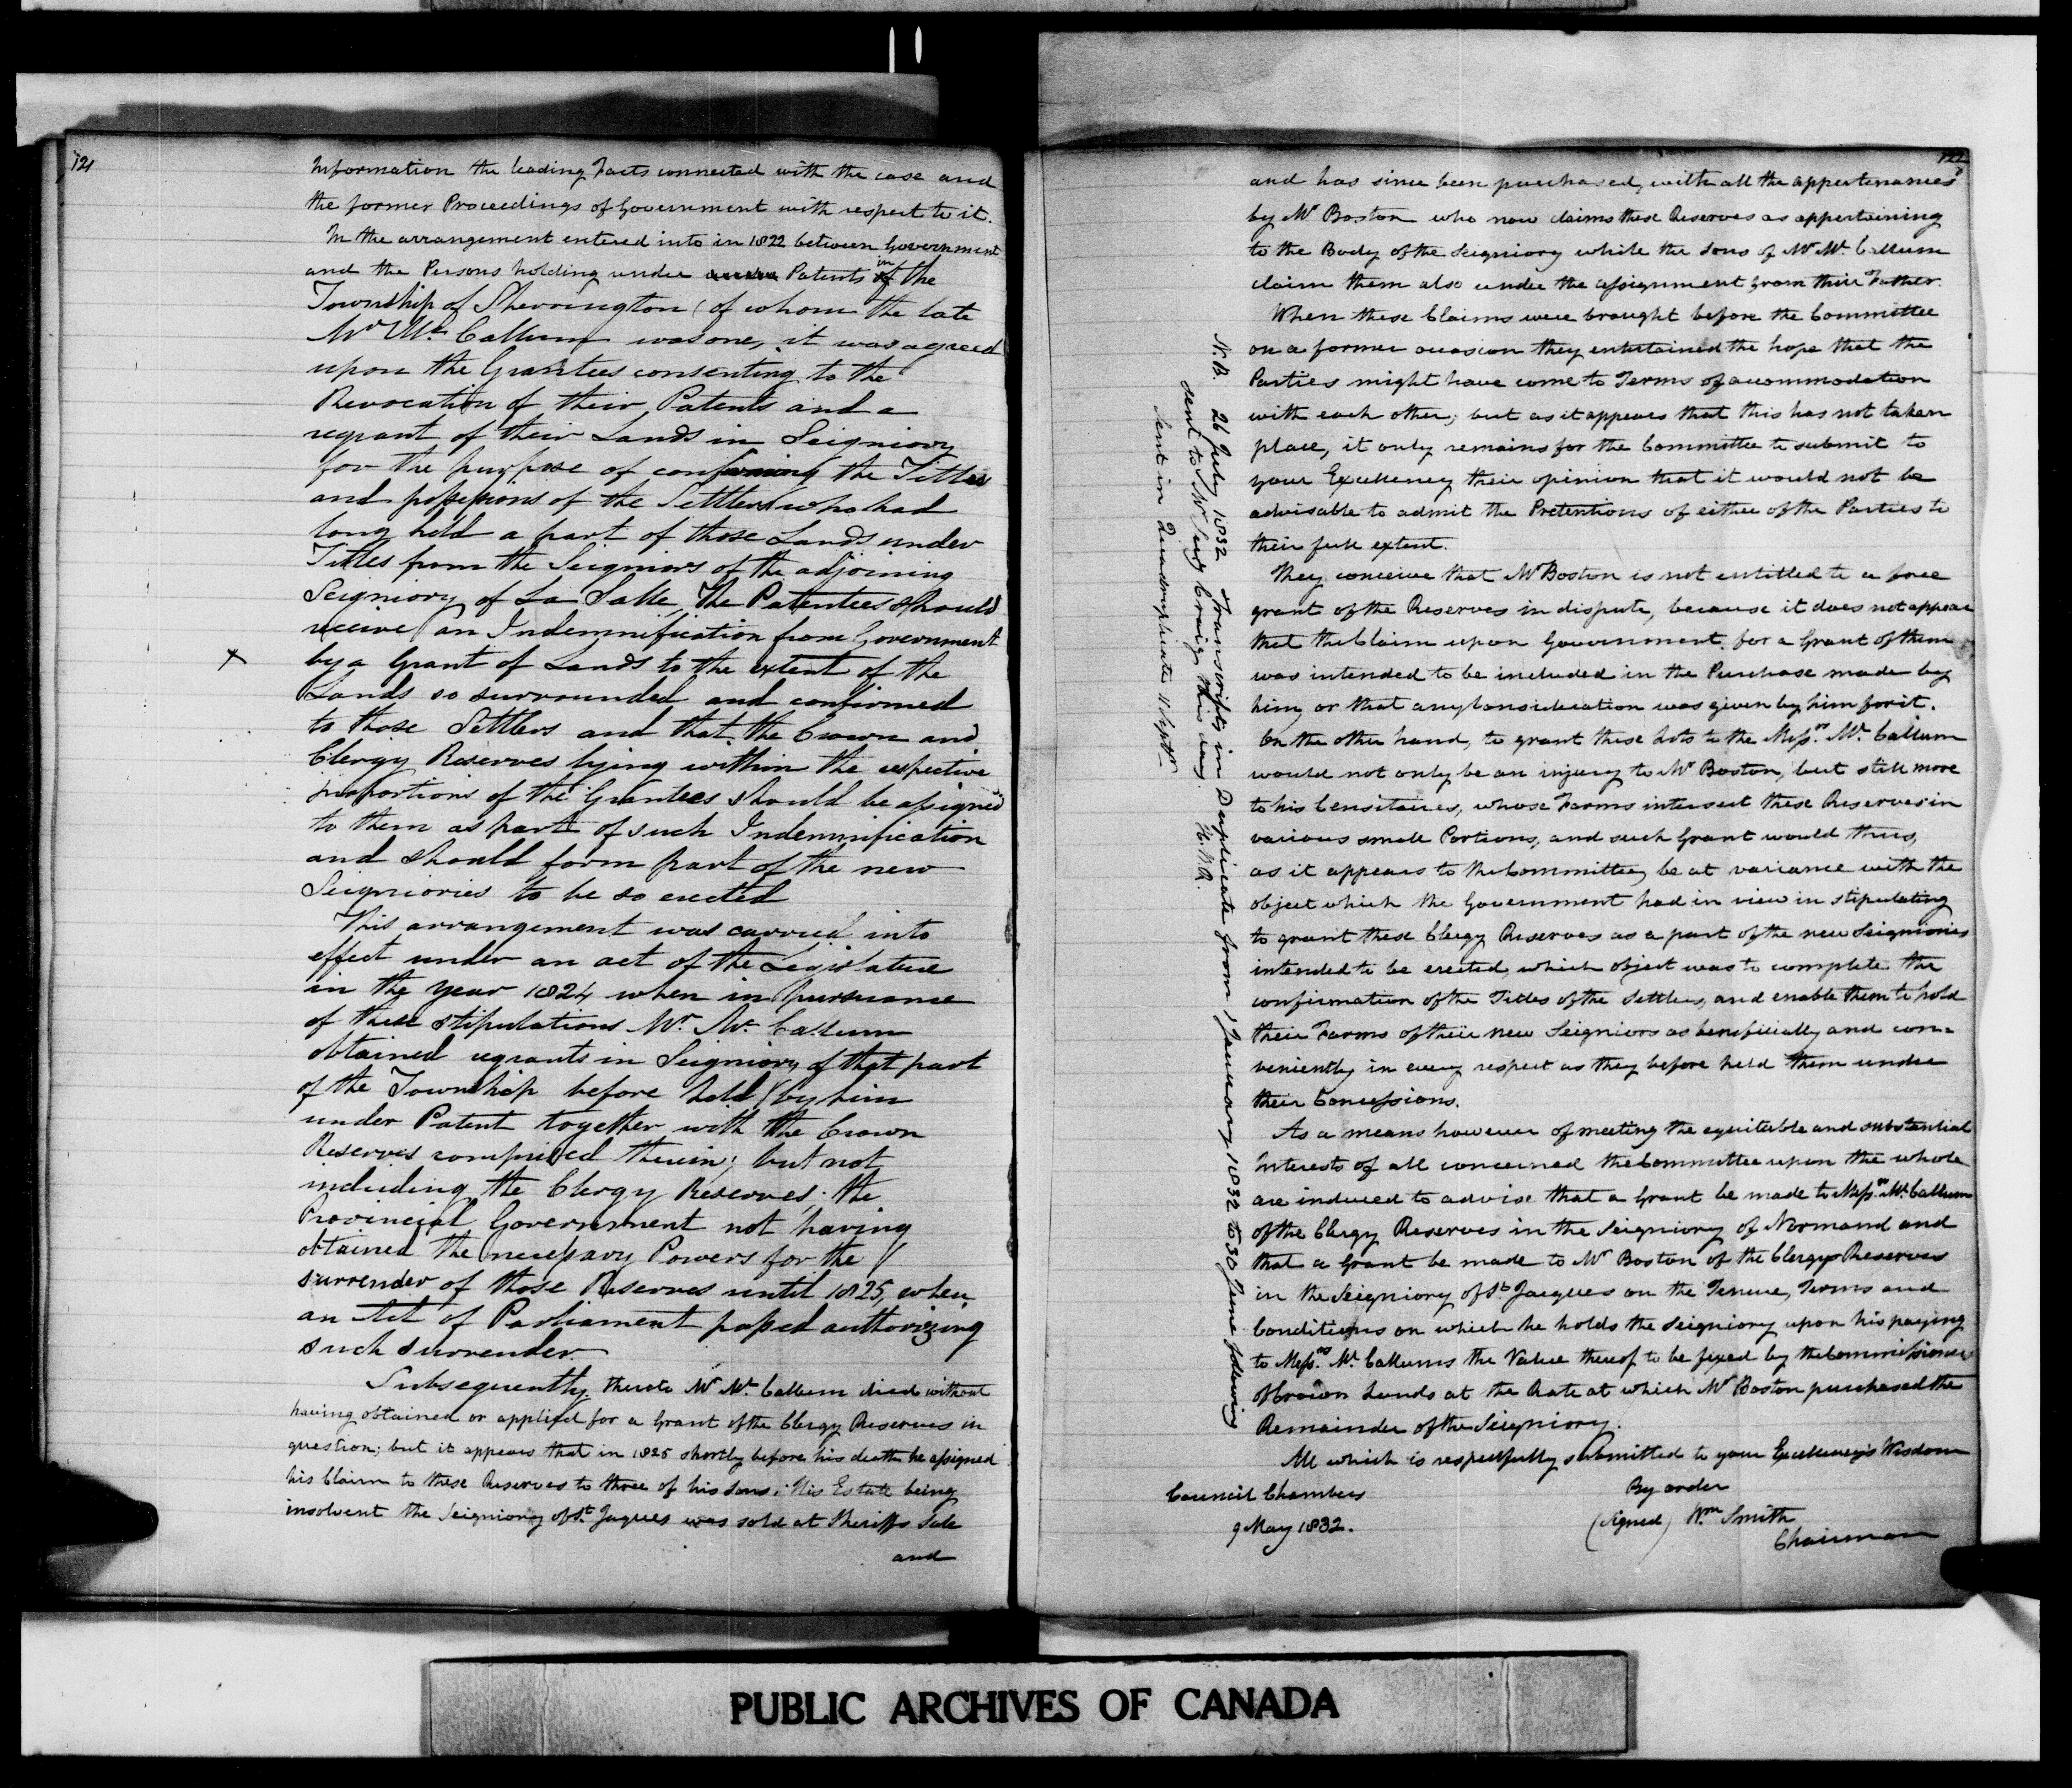 121
Information the leading Facts connected with the case and
the former Proceedings of Government with respect to it.
In the arrangement entered into in 1822 between Government
and the Persons holding under Patents in the
Township of Sherrington (of whom the late
Mr Mc Callum was one, it was agreed
upon the Grantees consenting to the
Revocation of their Patents and a
regrant of their Lands in Seigniory
for the purpose of confirming the Titles
and possessions of the Settlers who had
long held a part of those Lands under
Titles from the Seigniors of the adjoining
Seigniory of La Salle, The Patentees should
receive an Indemnification from Government
x
by a Grant of Lands to the extent of the
Lands so surrounded and confirmed
to those Settlers and that the Crown and
Clergy Reserves lying within the respective
proportions of the Grantees should be assigned
to them as part of such Indemnification
and should form part of the new
Seigniories to be so erected
This arrangement was carried into
effect under an act of the Legislature
in the year 1824 when in pursuance
of these stipulations Mr. Mc Callum
obtained regrants in Seigniory of that part
of the Township before held by him
under Patent together with the Crown
Reserves comprised therein; but not
including the Clergy Reserves; the
Provincial Government not having
obtained the necessary Powers for the
surrender of those Reserves until 1825, when
an Act of Parliament passed authorizing
such surrender
Subsequently thereto Mr Mc Callum died without
having obtained or applied for a Grant of the Clergy Reserves in
question; but it appears that in 1825 shortly before his death he assigned
his Claim to these Reserves to three of his Sons: His Estate being
insolvent the Seigniory of St. Jaques was sold at Sheriffs Sale
and
122
and has since been purchased, with all the appertenances
by Mr Boston who now claims these Reserves as appertaining
to the Body of the Seigniory while the Sons of Mr Mc Callum
claim them also under the assignment from their Father.
When these Claims were brought before the Committee
on a former occasion they entertained the hope that the
Parties might have come to Terms of accommodation
with each other; but as it appears that this has not taken
place, it only remains for the Committee to submit to
your Excellency their opinion that it would not be
advisable to admit the Pretentions of either of the Parties to
their full extent.
They conceive that Mr Boston is not entitled to a free
grant of the Reserves in dispute, because it does not appear
that the Claim upon Government for a Grant of them
was intended to be included in the Purchase made by
him, or that any Consideration was given by him for it.
On the other hand, to grant these Lots to the Messrs. Mc Callum
would not only be an injury to Mr Boston, but still more
to his Censitaires, whose Farms intersect these Reserves in
various small Portions, and such Grant would thus,
as it appears to the Committee, be at variance with the
object which the Government had in view in stipulating
to grant these Clergy Reserves as a part of the new Seigniories
intended to be erected, which object was to complete the
confirmation of the Titles of the Settlers, and enable them to hold
their Farms of their new Seigniors as beneficially and con=
veniently in every respect as they before held them under
their Concessions.
As a means however of meeting the equitable and substantial
Interests of all concerned the Committee upon the whole
are induced to advise that a Grant be made to Messrs. Mc Callum
of the Clergy Reserves in the Seigniory of Normand and
that a Grant be made to Mr Boston of the Clergy Reserves
in the Seigniory of St. Jacques on the Tenure, Terms and
Conditions on which he holds the Seigniory upon his paying
to Messrs. Mc Callums the Value thereof to be fixed by the Commissioner
of Crown Lands at the Rate at which Mr Boston purchased the
Remainder of the Seigniory.
All which is respectfully submitted to your Excellency's Wisdom
Council Chambers
By order
9 May 1832.
(signed) Wm Smith
Chairman
N.B. 26 July 1832 Transcripts in Duplicate from 1 January 1832 to 30 June following
sent to Mr Secy Craig this day. H.W.R.
Sent in Quadruplicate 11 Septr
PUBLIC ARCHIVES OF CANADA